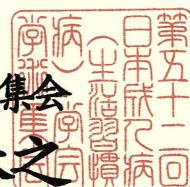 第五十二回
日本成人病
(生活習慣
病)学会
学術集会
集会
之